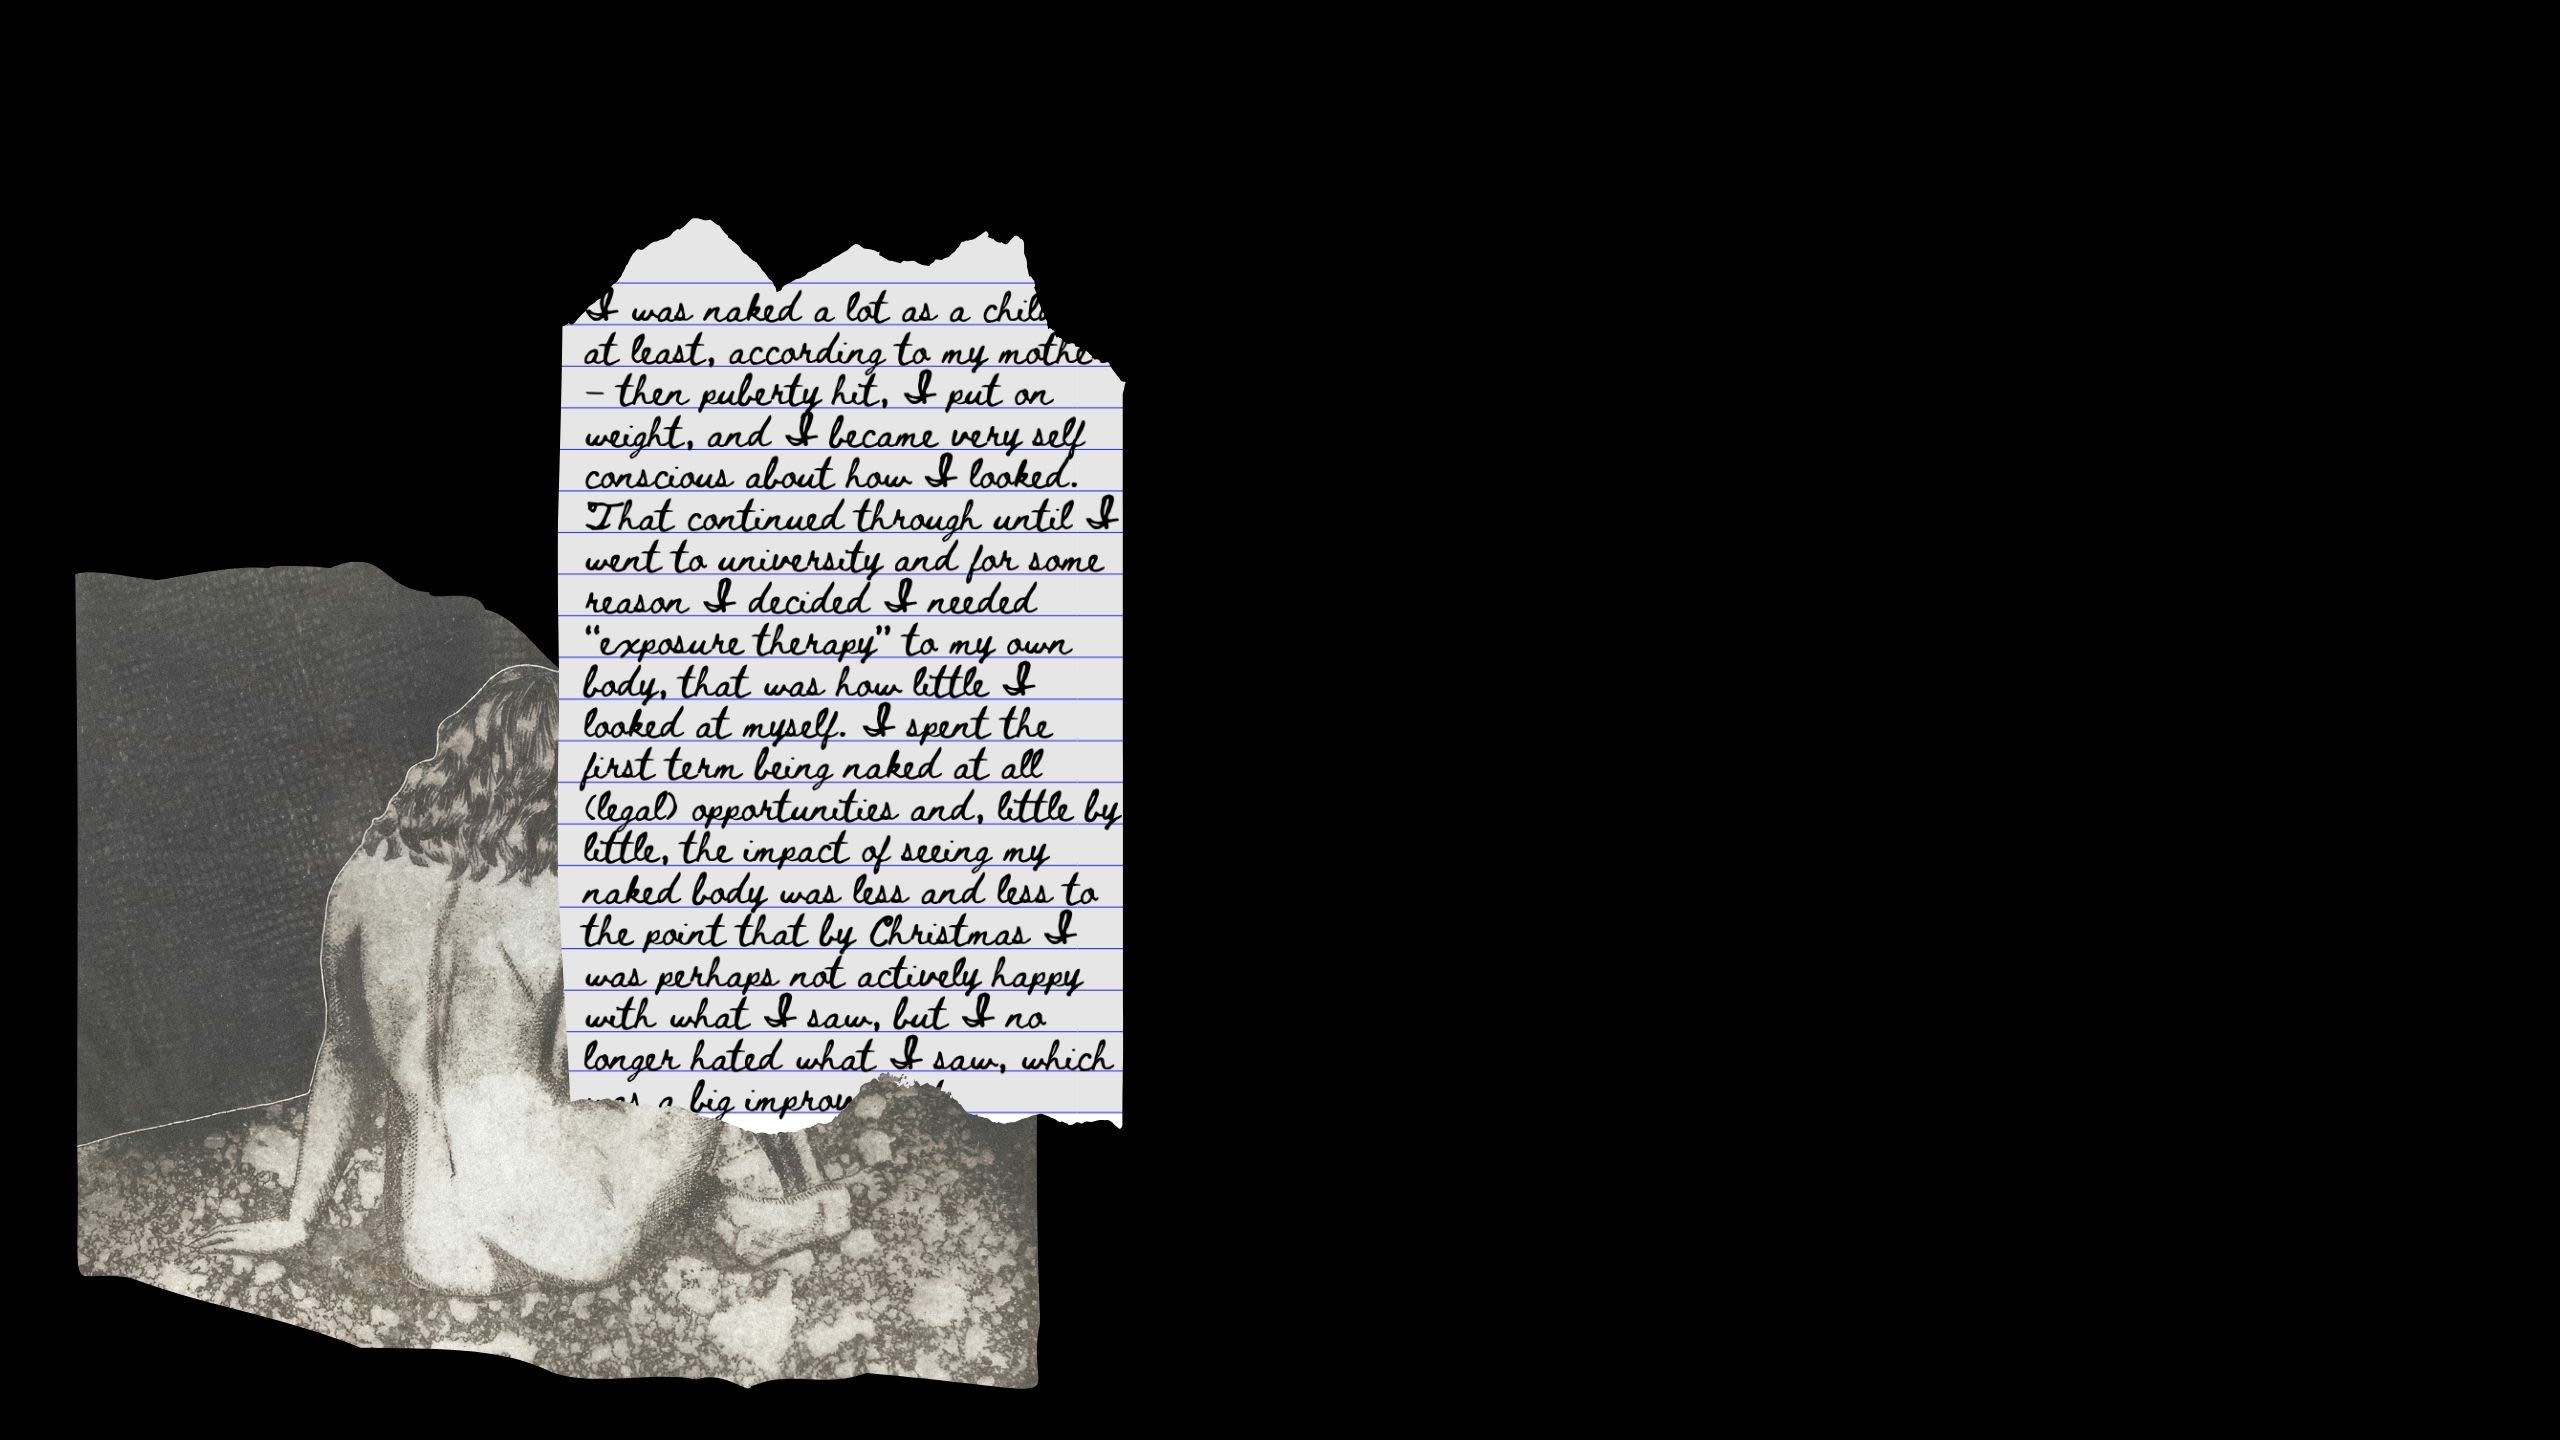 I was naked a lot as a
at least, according to my
– then puberty hit, I put on
weight, and I became very self
conscious about how I looked.
That continued through until I
went to university and for some
reason I decided I needed
“exposure therapy” to my own
body, that was how little I
looked at myself. I spent the
first term being naked at all
(legal) opportunities and, little by
little, the impact of seeing my
naked body was less and less to
the point that by Christmas I
was perhaps not actively happy
with what I saw, but I no
longer hated what I saw, which
was a big